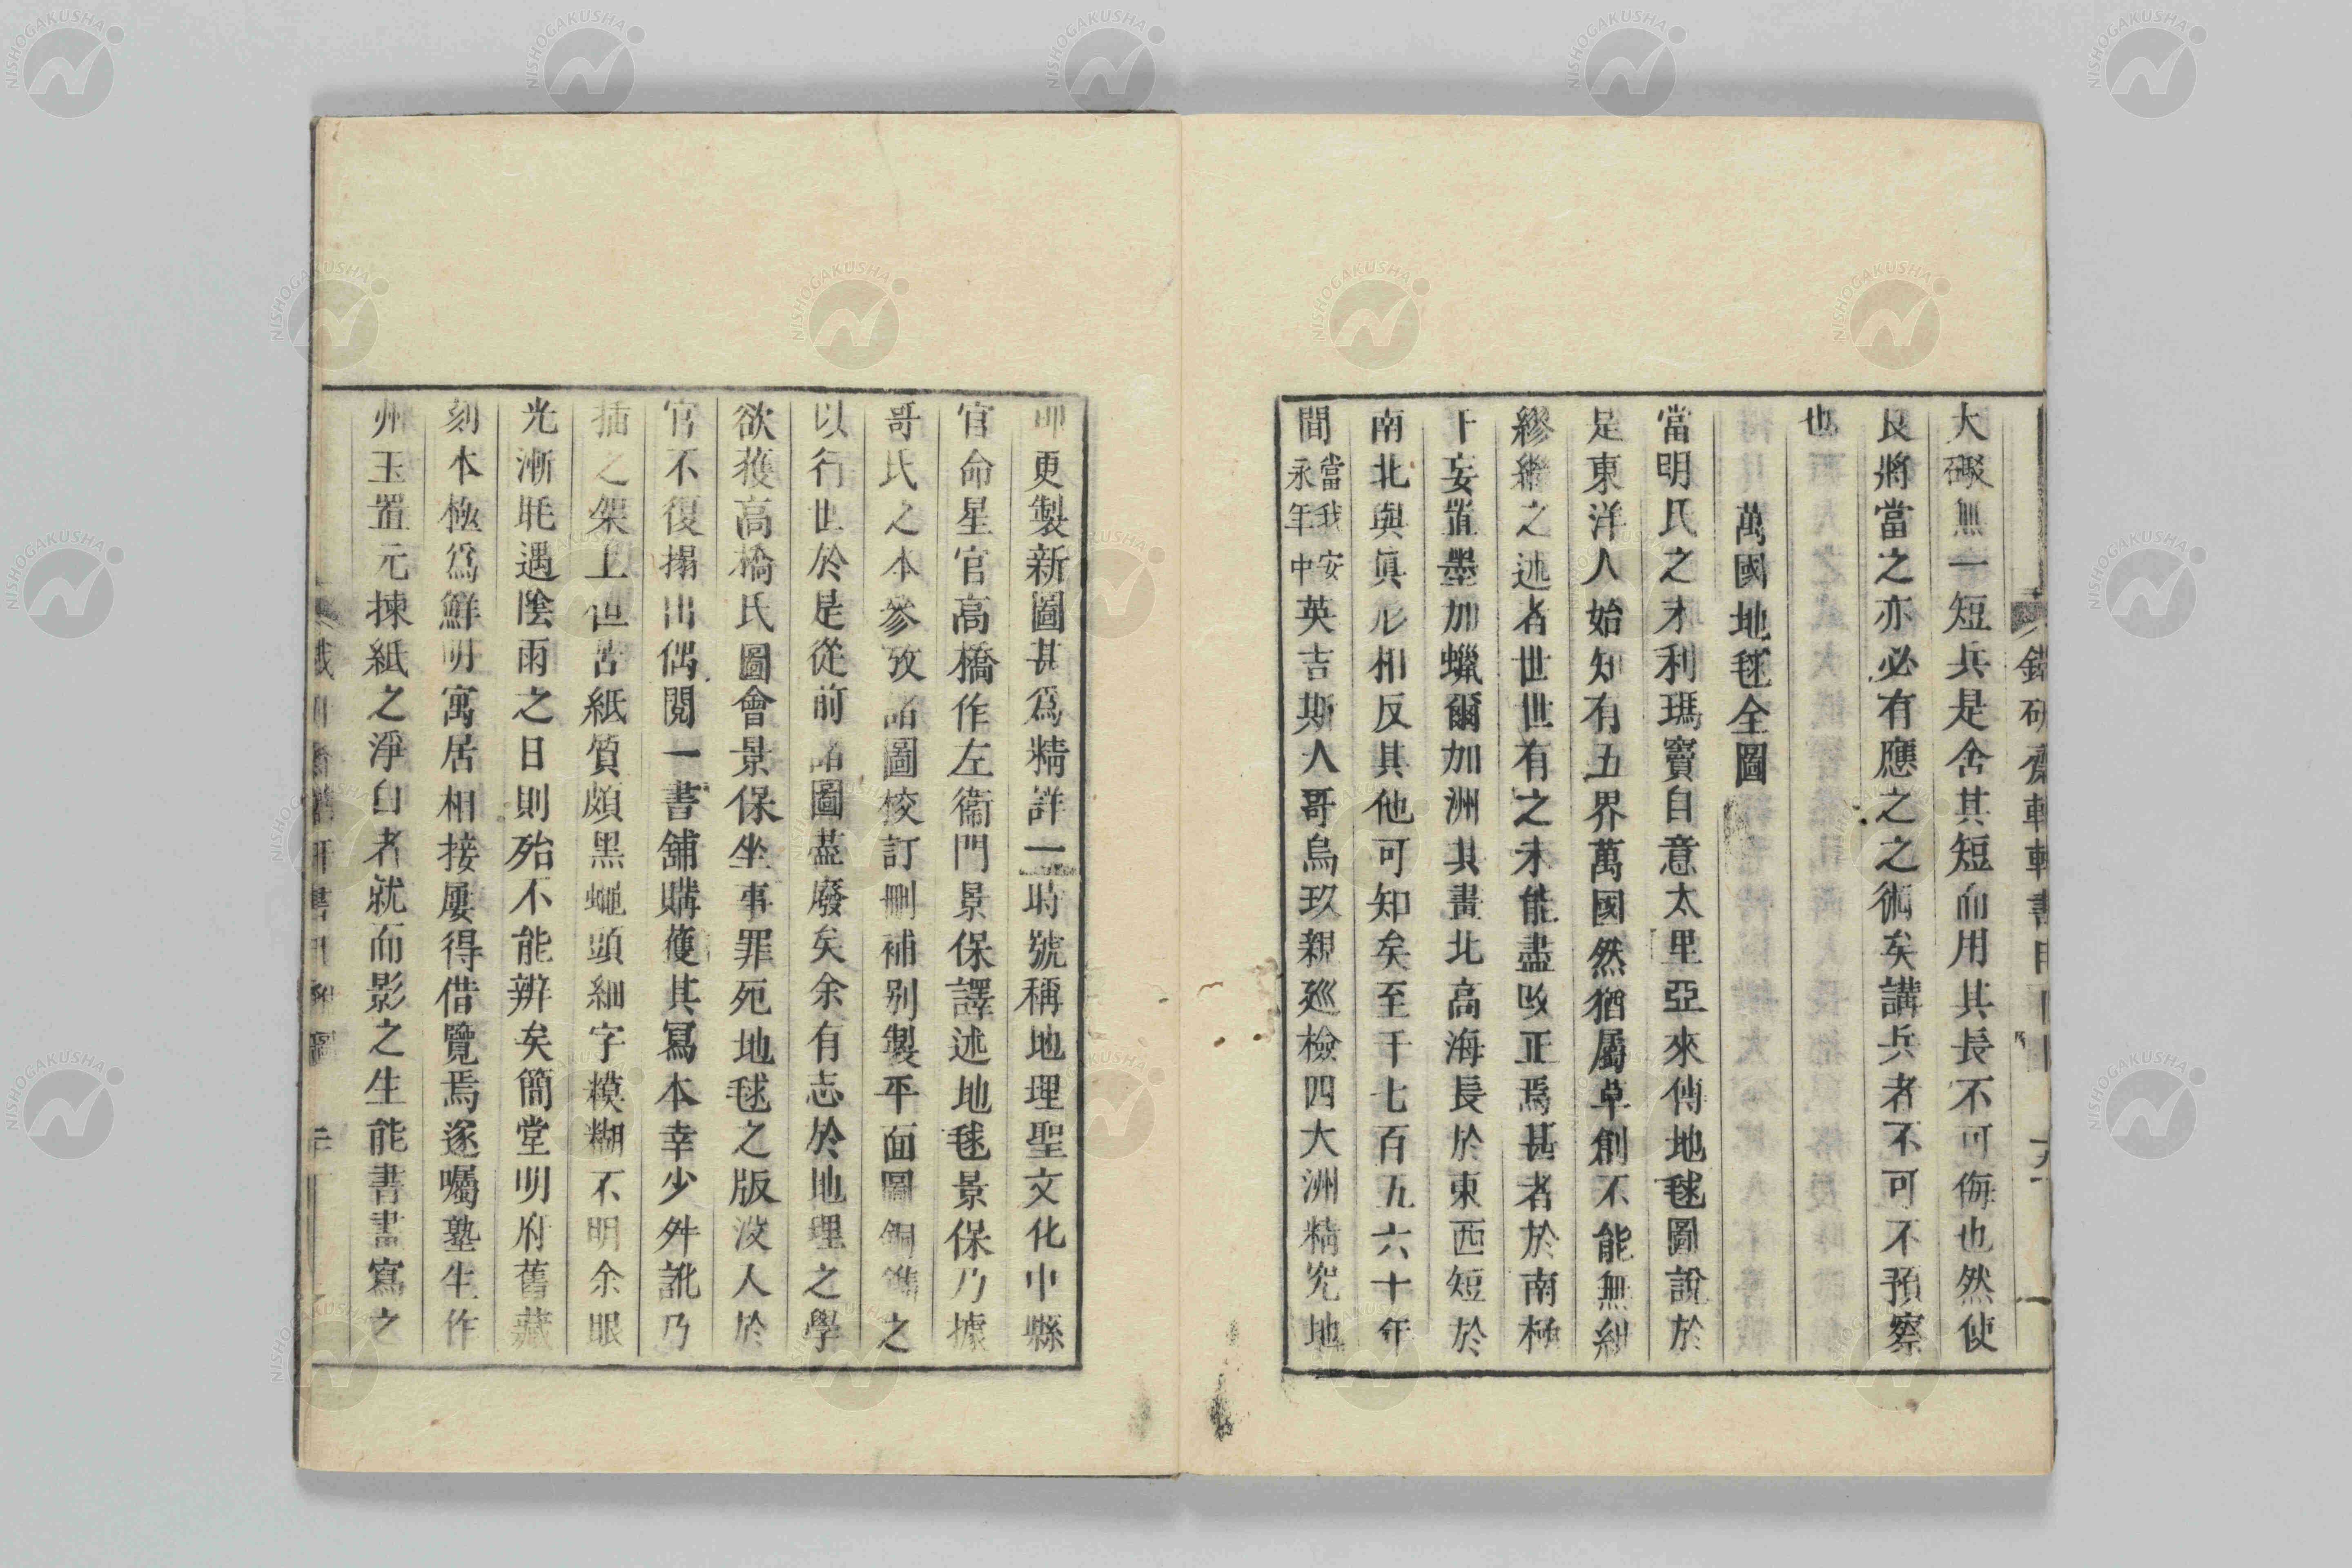 大礟無一短兵是舍其短而用其長不可侮也然使
良將當之亦必有應之之術矣講兵者不可不預察
也
萬國地毬全圖
當明氏之末利瑪竇自意太里亞來傳地毬圖說於
是東洋人始知有五界萬國然猶屬草創不能無紕
繆繼之述者世世有之未能盡改正焉甚者於南極
下妄置墨加蠟爾加洲其畫北高海長於東西短於
南北與眞形相反其他可知矣至千七百五六十年
間當我安永年中英吉斯人哥烏玖親巡檢四大洲精究地
更製新圖甚爲精詳一時號稱地理聖文化中縣
官命星官高橋作左衞門景保譯述地毬景保乃據
哥氏之本參攷諸圖校訂刪補別製平面圖銅鐫之
以行世於是從前諸圖盡廢矣余有志於地理之學
欲獲高橋氏圖會景保坐事罪死地毬之版沒人於
官不復搨出偶閱一書舖購獲其寫本幸少舛訛乃
插之架上但苦紙質頗黑蠅頭細字模糊不明余眼
光漸眊遇陰雨之日則殆不能辨矣簡堂明府舊藏
刻本極爲鮮明寓居相接屢得借覽焉遂囑塾生作
州玉置元揀紙之淨白者就而影之生能書畫寫之
NISHOGAKUSHA